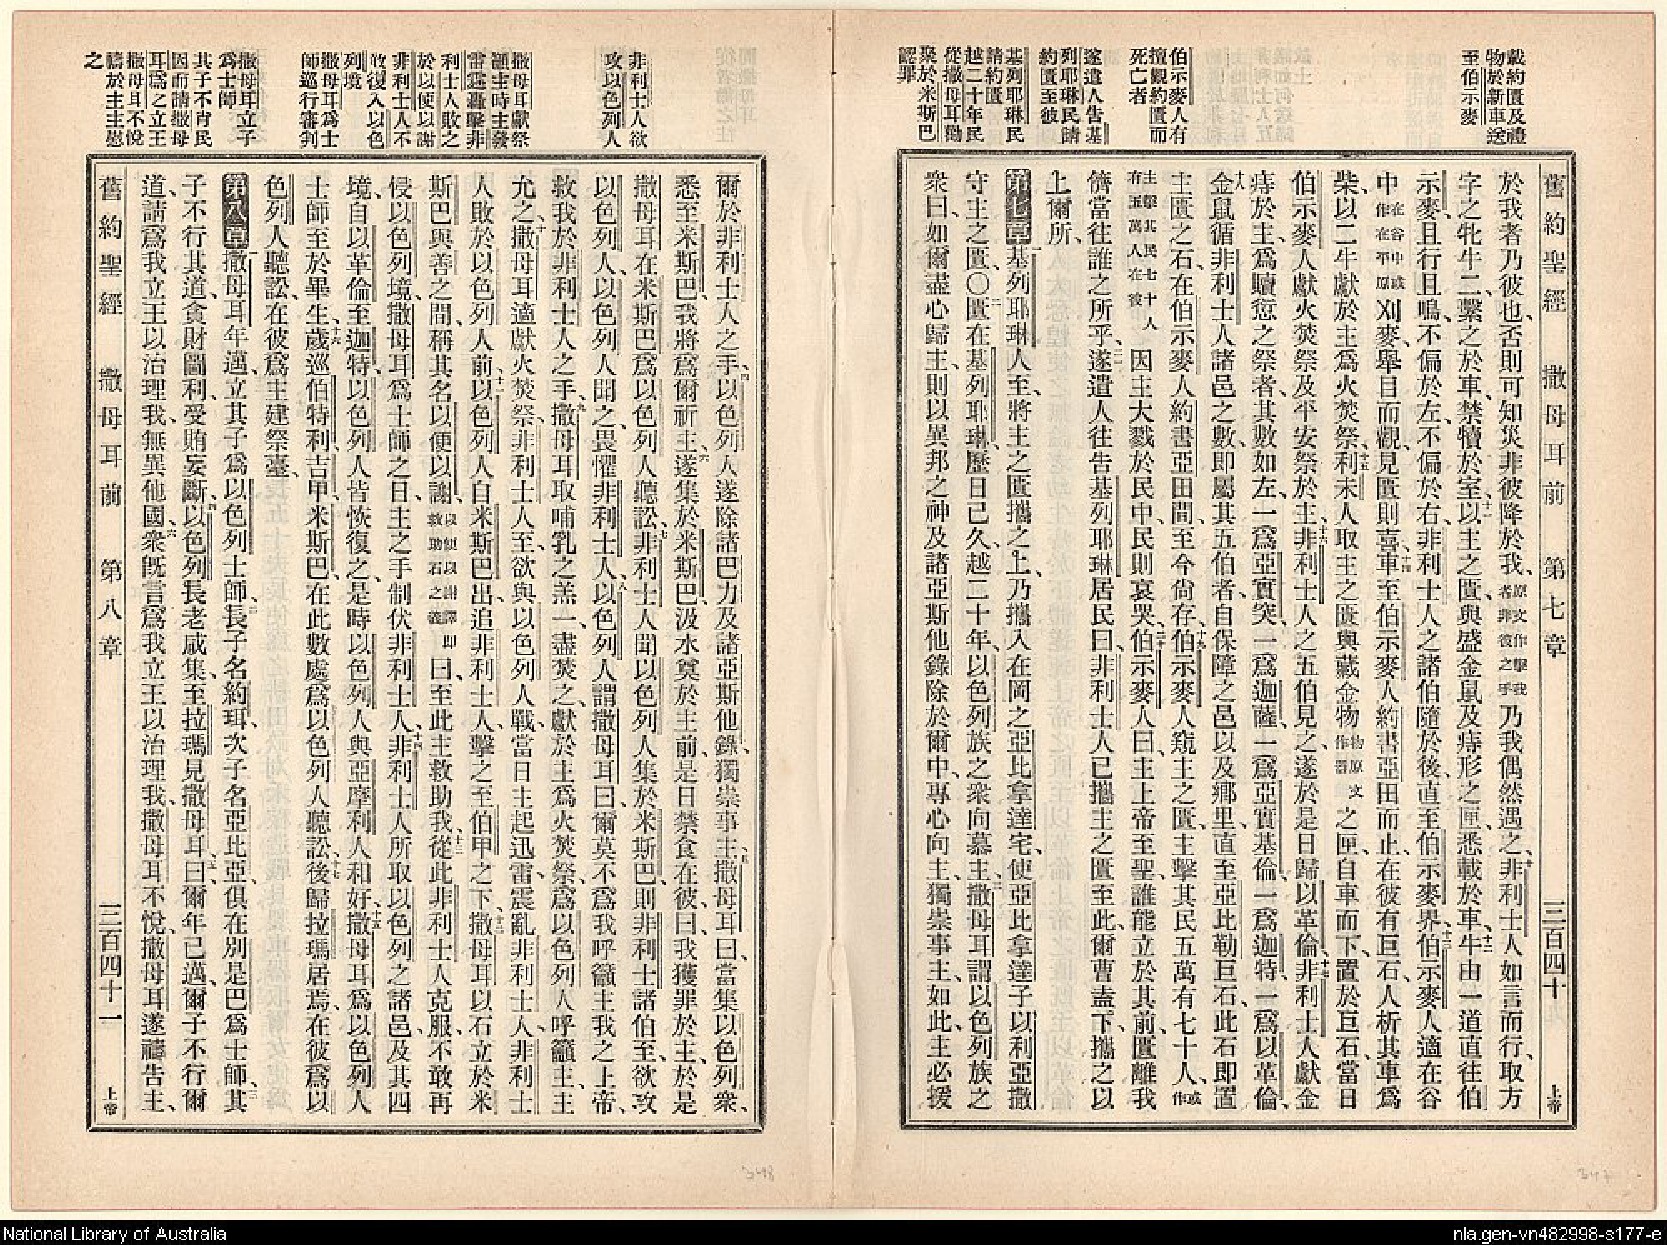 載約匱及禮
物於新車送
至伯示麥
伯示麥人有
擅觀約匱而
死亡者
遂遣人告基
列耶琳民請
約匱至彼
基列耶琳民
請約匱
越二十年民
從撒母耳勸
聚於米斯巴
認罪
舊約聖經 撒母耳前 第七章 三百四十 上帝
於我者乃彼也、否則可知災非彼降於我、原文作擊我者非彼之手乃我偶然遇之、十非利士人如言而行、取方
字之牝牛二繫之於車、禁犢於室、十一以主之匱與盛金鼠及痔形之匣、悉載於車、十二牛由一道直往伯
示麥、且行且鳴、不偏於左、不偏於右、非利士人之諸伯隨於後、直至伯示麥界、十三伯示麥人適在谷
中在谷中或作在平原刈麥、舉目而觀、見匱則喜、十四車至伯示麥人約書亞田而止、在彼有巨石、人析其車為
柴、以二牛獻於主為火焚祭、十五利未人取主之匱與藏金物物原文作器之匣、自車而下、置於巨石、當日
伯示麥人獻火焚祭及平安祭於主、十六非利士人之五伯見之、遂於是日歸以革倫、十七非利士人獻金
痔於主、為贖愆之祭者、其數如左、一為亞實突、一為迦薩、一為亞實基倫、一為迦特、一為以革倫、
十八金鼠循非利士人諸邑之數、即屬其五伯者、自保障之邑、以及鄉里、直至亞比勒巨石、此石即置
主匱之石、在伯示麥人約書亞田間、至今尚存、十九伯示麥人窺主之匱、主擊其民五萬有七十人、或作
主擊其民七十人在五萬人在彼因主大戮於民中、民則哀哭、二十伯示麥人曰、主上帝至聖、誰能立於其前、匱離我
儕當往誰之所乎、二一遂遣人往告基列耶琳居民曰、非利士人已攜主之匱至此、爾曹盍下、攜之以
上爾所、
第七章 一基列耶琳人至、將主之匱攜之上、乃攜入在岡之亞比拿達宅、使亞比拿達子以利亞撒
守主之匱、〇二匱在基列耶琳、歷日已久、越二十年、以色列族之衆向慕主、三撒母耳謂以色列族之
衆曰、如爾盡心歸主、則以異邦之神及諸亞斯他錄除於爾中、專心向主、獨崇事主、如此、主必援
非利士人欲
攻以色列人
撒母耳獻祭
籲主時主發
雷霆轟擊非
利士人敗之
於以便以謝
非利士人不
敢復入以色
列境
撒母耳為士
師巡行審判
撒母耳立子
為士師
其子不肖民
因而請撒母
耳為之立王
撒母耳不悅
禱於主主慰
之
爾於非利士人之手、四以色列人遂除諸巴力及諸亞斯他錄、獨崇事主、五撒母耳曰、當集以色列衆、
悉至米斯巴、我將為爾祈主、六遂集於米斯巴、汲水奠於主前、是日禁食、在彼曰、我獲罪於主、於是
撒母耳在米斯巴為以色列人聽訟、七非利士人聞以色列人集於米斯巴、則非利士諸伯至、欲攻
以色列人、以色列人聞之、畏懼非利士人、八以色列人謂撒母耳曰、爾莫不為我呼籲主我之上帝、
救我於非利士人之手、九撒母耳取哺乳之羔一、盡焚之、獻於主為火焚祭、為以色列人呼籲主、主
允之、十撒母耳適獻火焚祭、非利士人至、欲與以色列人戰、當日主起迅雷震亂非利士人、非利士
人敗於以色列人前、十一以色列人自米斯巴出、追非利士人、擊之至伯甲之下、十二撒母耳以石立於米
斯巴與善之間、稱其名以便以謝、以便以謝譯即救助石之義曰、至此主救助我、十三從此非利士人克服、不敢再
侵以色列境、撒母耳為士師之日、主之手制伏非利士人、十四非利士人所取以色列之諸邑、及其四
境、自以革倫至迦特、以色列人皆恢復之、是時以色列人與亞摩利人和好、十五撒母耳為以色列人
士師、至於畢生、十六歲巡伯特利吉甲米斯巴、在此數處為以色列人聽訟、十七後歸拉瑪居焉、在彼為以
色列人聽訟、在彼為主建祭臺、
第八章 一撒母耳年邁、立其子為以色列士師、二長子名約珥、次子名亞比亞、俱在別是巴為士師、三其
子不行其道、貪財圖利、受賄妄斷、四以色列長老咸集、至拉瑪見撒母耳、五曰、爾年已邁、爾子不行爾
道、請為我立王以治理我、無異他國、六衆既言為我立王以治理我、撒母耳不悅、撒母耳遂禱告主、
舊約聖經 撒母耳前 第八章 三百四十一 上帝
348
347
National Library of Australia
nla.gen-vn482998-s177-e